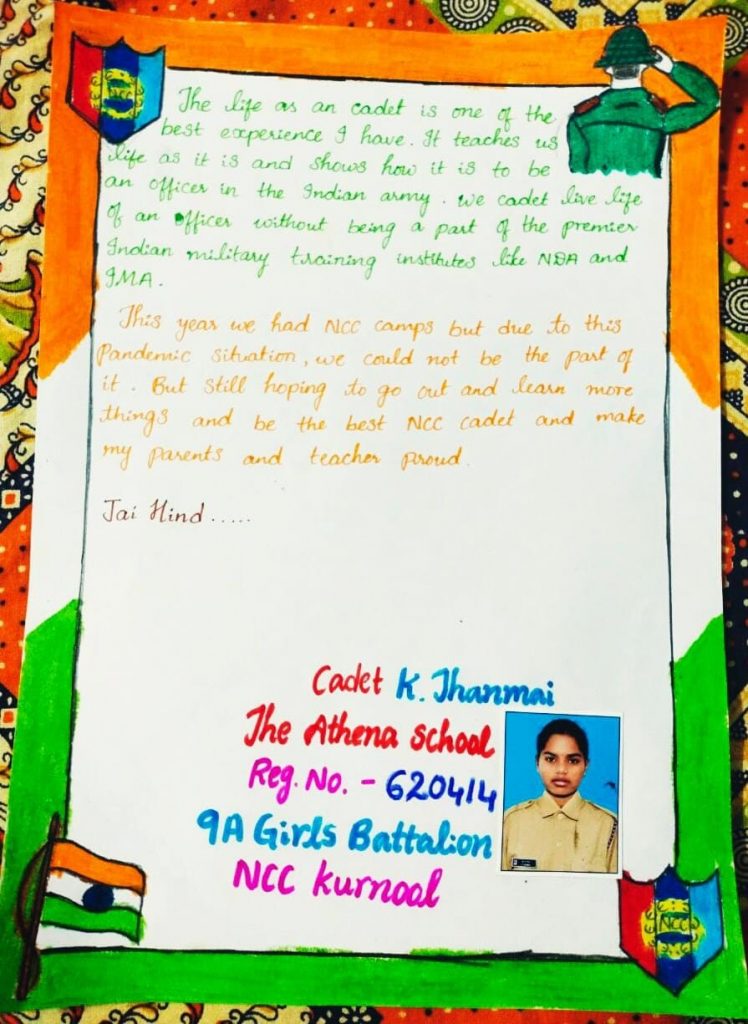 NCC
The life as an cadet is one of the
best experience I have. It teaches us
life as it is and shows how it is to be
an officer in the Indian army. we cadet live life
of an officer without being a part of the premier
Indian military training institutes like NDA and
IMA.
This year we had NCC camps but due to this
Pandemic situation, we could not be the part of
it. But still hoping to go out and learn more
things and be the best NCC cadet and make
my parents and teacher proud.
Jai Hind.....
Cadet K. Jhanmai
The Athena School
Reg. No. - 620414
9A Girls Battalion
NCC Kurnool
NCC